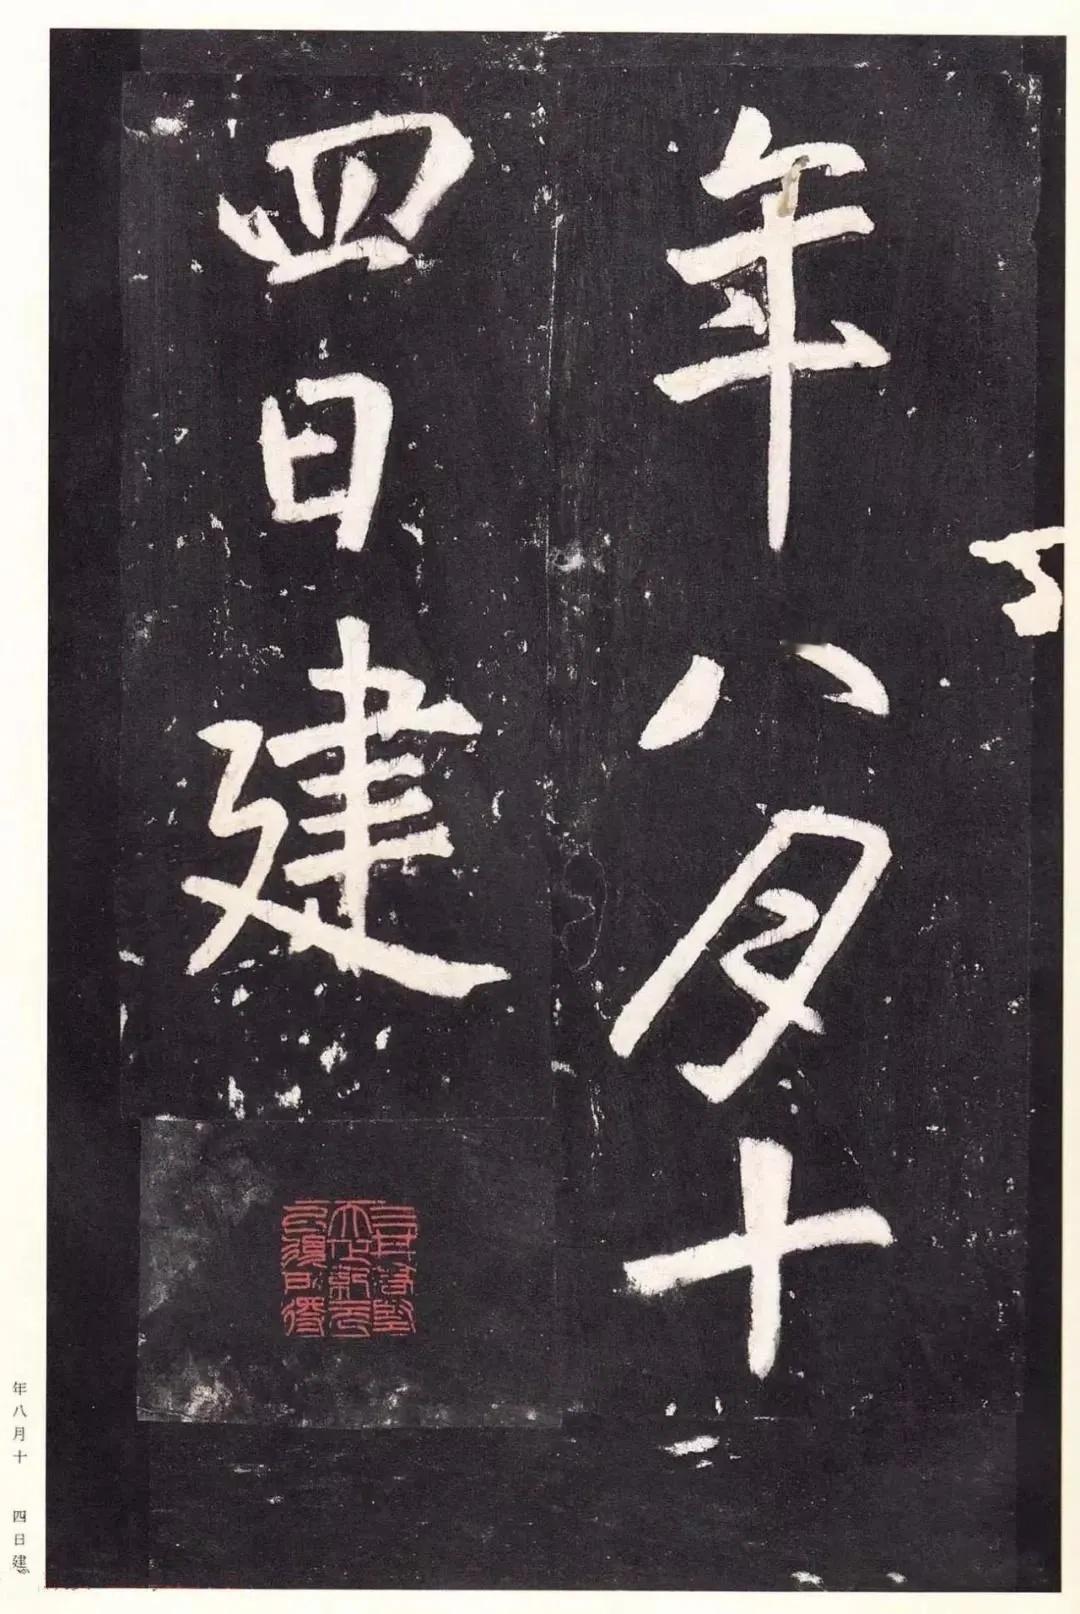 年八月十
四日建
年八月十 四日建